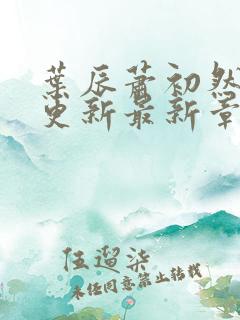 葉辰蕭初然
更新最新章
伍遛柒
未经同意禁止转载